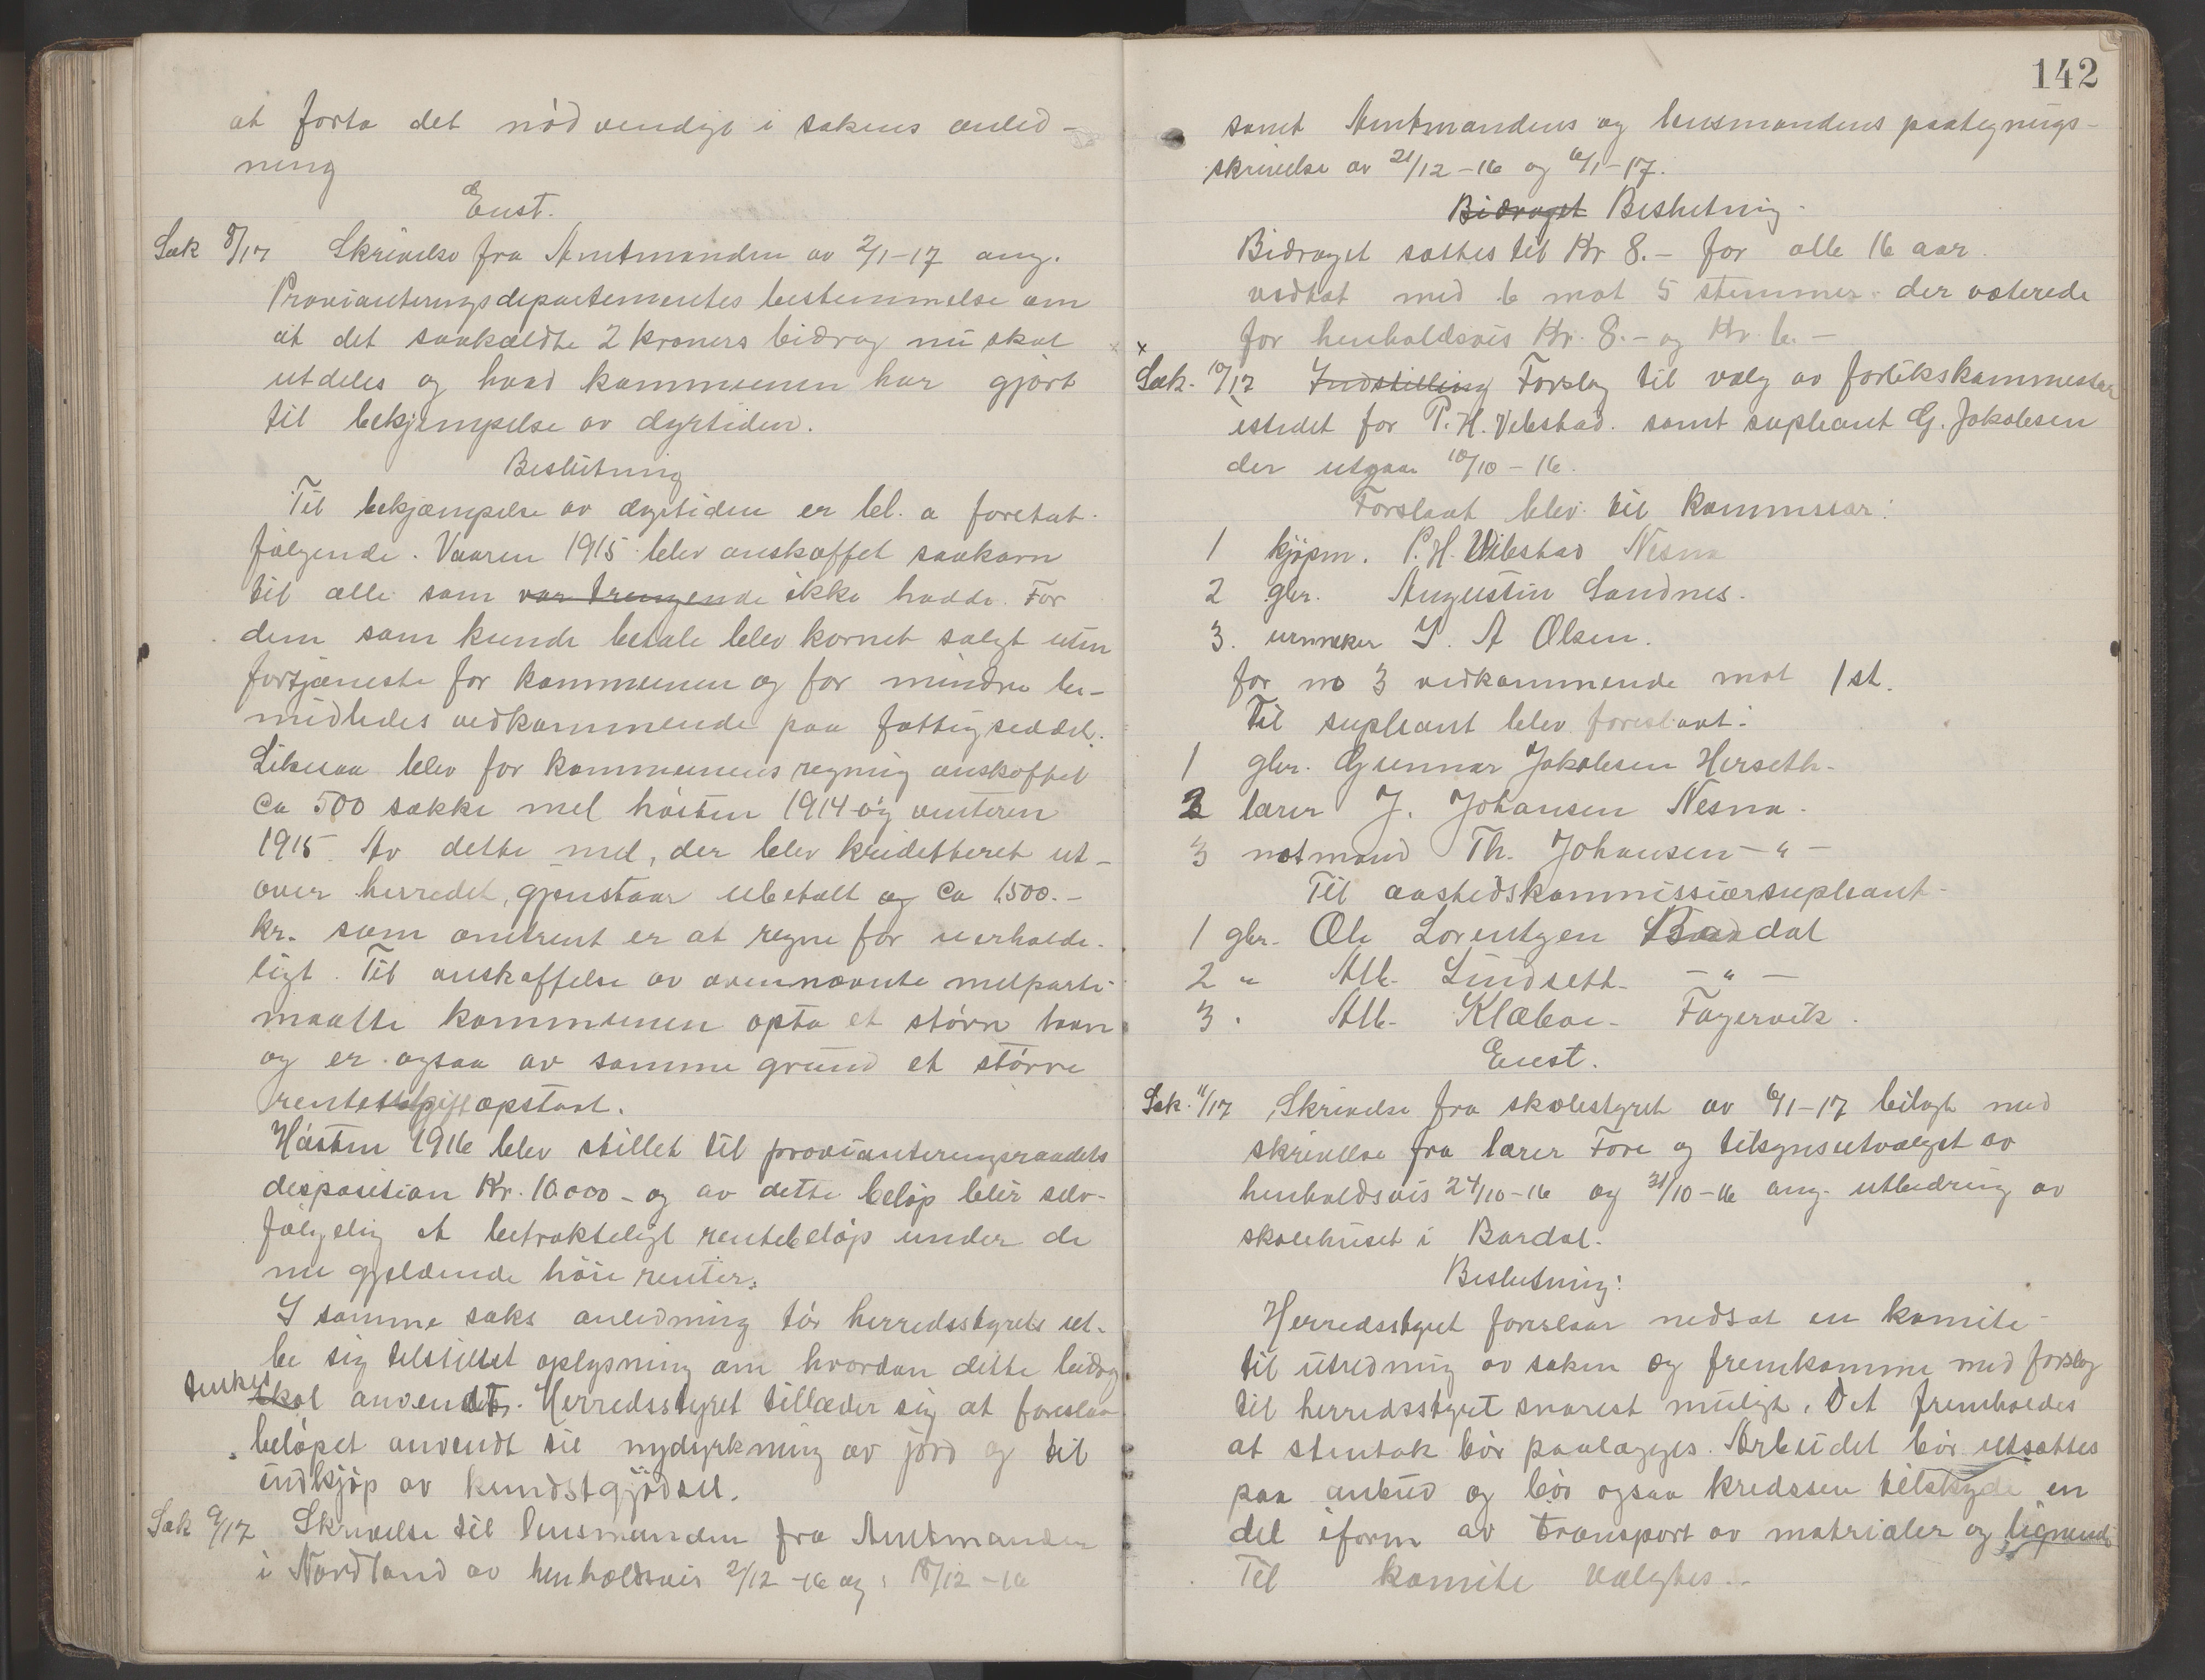 at forta det nödvendige i sakens anled-
ning
Enst.
Sak 8/17 Skrivelse fra Amtmanden av 2/1-17 ang.
Provianteringsdepartementes bestemmelse om
at det saakaldte 2 kroners bidrag nu skal
utdeles og hvad kommunen har gjort
til bekjæmpelse av dyrtiden.
Beslutning
Til bekjæmpelse av dyrtiden er bl. a foretat
følgende. Vaaren 1915 blev anskaffet saakorn
til alle som var trængende ikke hadde. For
dem som kunde betale blev kornet solgt uten
fortjæneste for kommunen og for mindre be-
midledes vedkommende paa fattigseddel.
Likesaa blev for kommunens regning anskaffet
Ca 500 sække mel hösten 1914 og vinteren
1915. Av dette mel, der blev kreditteret ut-
over herredet, gjenstaar ubetalt og Ca 1500.-
kr. som omtrent er at regne for uerholde-
ligt. Til anskaffelse av ovennævnte melparti
maatte kommunen opta et større laan
og er ogsaa av samme grund et större
renteutgift opstaat.
Hösten 1916 blev stillet til provianteringsraadets
disposition Kr. 10000 - og av dette belöp blir selv-
følgelig et betrakteligt rentebelöp under de
nu gjældende höie renter.
I samme saks anledning tör herredsstyret ut-
be sig tilstillet oplysning om hvordan dette bidrag
tænkes
skal anvendt. Herredsstyret tillader sig at foreslaa
belöpet anvendt til nydyrkning av jord og til
indkjöp av kunstgjödsel.
Sak 9/17 Skrivelse til lensmanden fra Amtmanden
i Nordland av henholdsvis 2/12-16 og 18/12-16
142
samt Amtmandens og lensmandens paategnings-
skrivelse av 21/12-16 og 6/1-17.
Bidraget Beslutning.
Bidraget sættes til Kr 8.- for alle 16 aar
vedtat med 6 mot 5 stemmer der voterede
for henholdsvis Kr. 8.- og Kr. 6.-
x
Sak. 10/17 Indstilling Forslag til valg av forlikskommissær
istedet for P. H. Vibstad. samt supleant G. Jakobsen
der utgaar 10/10-16.
Forslaat blev til kommissær:
1 kjøpm. P. H. Vibstad Nesna
2 gbr. Augustin Sandnes.
3. urmaker I. A Olsen.
for no 3 vedkommende mot 1 st.
Til supleant blev foreslaat:
1 gbr. Gunnar Jakobsen Herseth-
2 lærer J. Johansen Nesna.
3 notmand Th. Johansen - " -
Til aastedskommissiærsupleant-
1 gbr. Ole Lorentzen Bardal
2 " Alb. Lindseth - " -
3. Alb. Klæboe- Fagervik.
Enst.
Sak. 11/17 Skrivelse fra skolestyret av 6/1-17 bilagt med
skrivelse fra lærer Fore og tilsynsutvalget av
henholdsvis 24/10-16 og 31/10-16 ang. utbedring av
skolehuset i Bardal.
Beslutning:
Herredsstyret foreslaar nedsat en komite
til utredning av saken og fremkomme med forslag
til herredsstyret snarest muligt. Det fremholdes
at stentak bör paalægges. Arbeidet bör utsættes
paa anbud og bör ogsaa kredsen tilskyde en
del iform av transport av matrialer og lignende
Til komite valgtes.